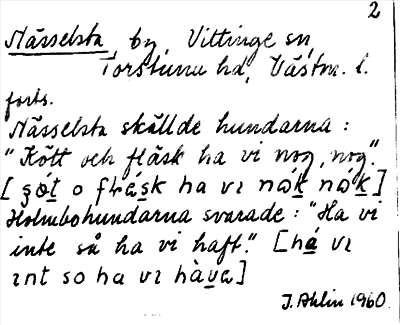 2
Nässelsta, by, Vittinge sn,
Torstuna hd, Västm. l.
forts.
Nässelsta skällde hundarna:
"Kött och fläsk ha vi nog, nog".
[ o ha vɪ]
Holmbohundarna svarade: "Ha vi
inte så ha vi haft." [há̱ vɪ
ɪnt so ha vɪ]
J. Ahlin 1960.